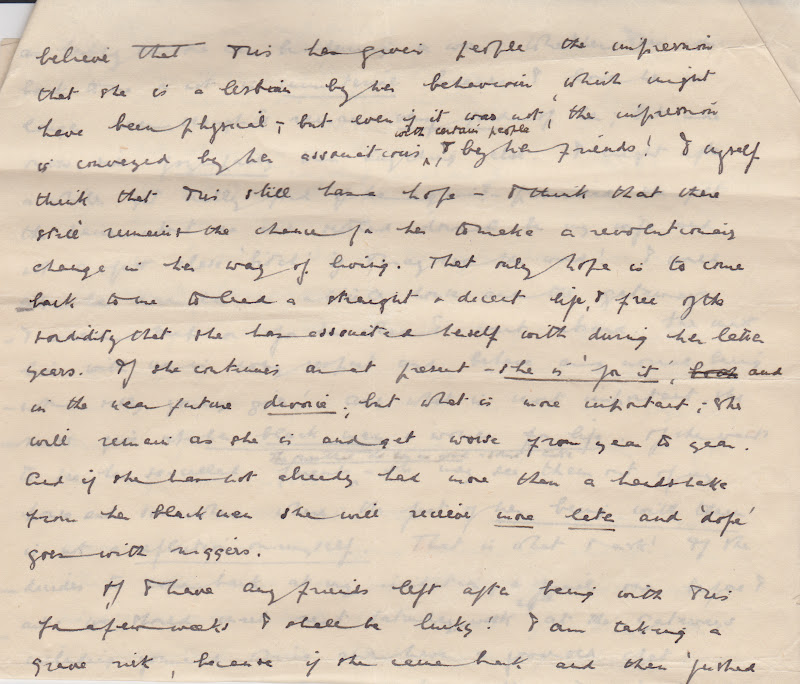 believe that this has given people the impression
that she is a lesbian by her behaviour, which might
have been physical; but even if it was not, the impression
with certain people
is conveyed by her associations, & by her friends! I myself
think that this still has a hope – I think that there
still remains the chance for her to make a revolutionary
change in her way of living. That only hope is to come
back to me to lead a straight & decent life, & free of the
sordidity that she has associated herself with during her later
years. If she continues as at present – she is 'for it', and
in the near future divorce; but what is more important; she
will remain as she is and get worse from year to year.
And if she has not already had more than a handshake
from her black men she will receive more later and 'dope'
goes with niggers.
If I have any friends left after being with this
for a few weeks I shall be lucky! I am taking a
grave risk, because if she came back and then 'pushed